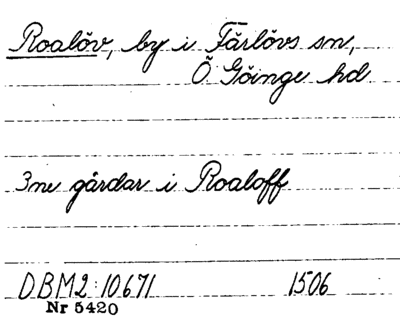 Roalöv, by i Färlövs sn,
Ö Göinge hd
3ne gårdar i Roaloff
DBM2:10671 1506
Nr 5420